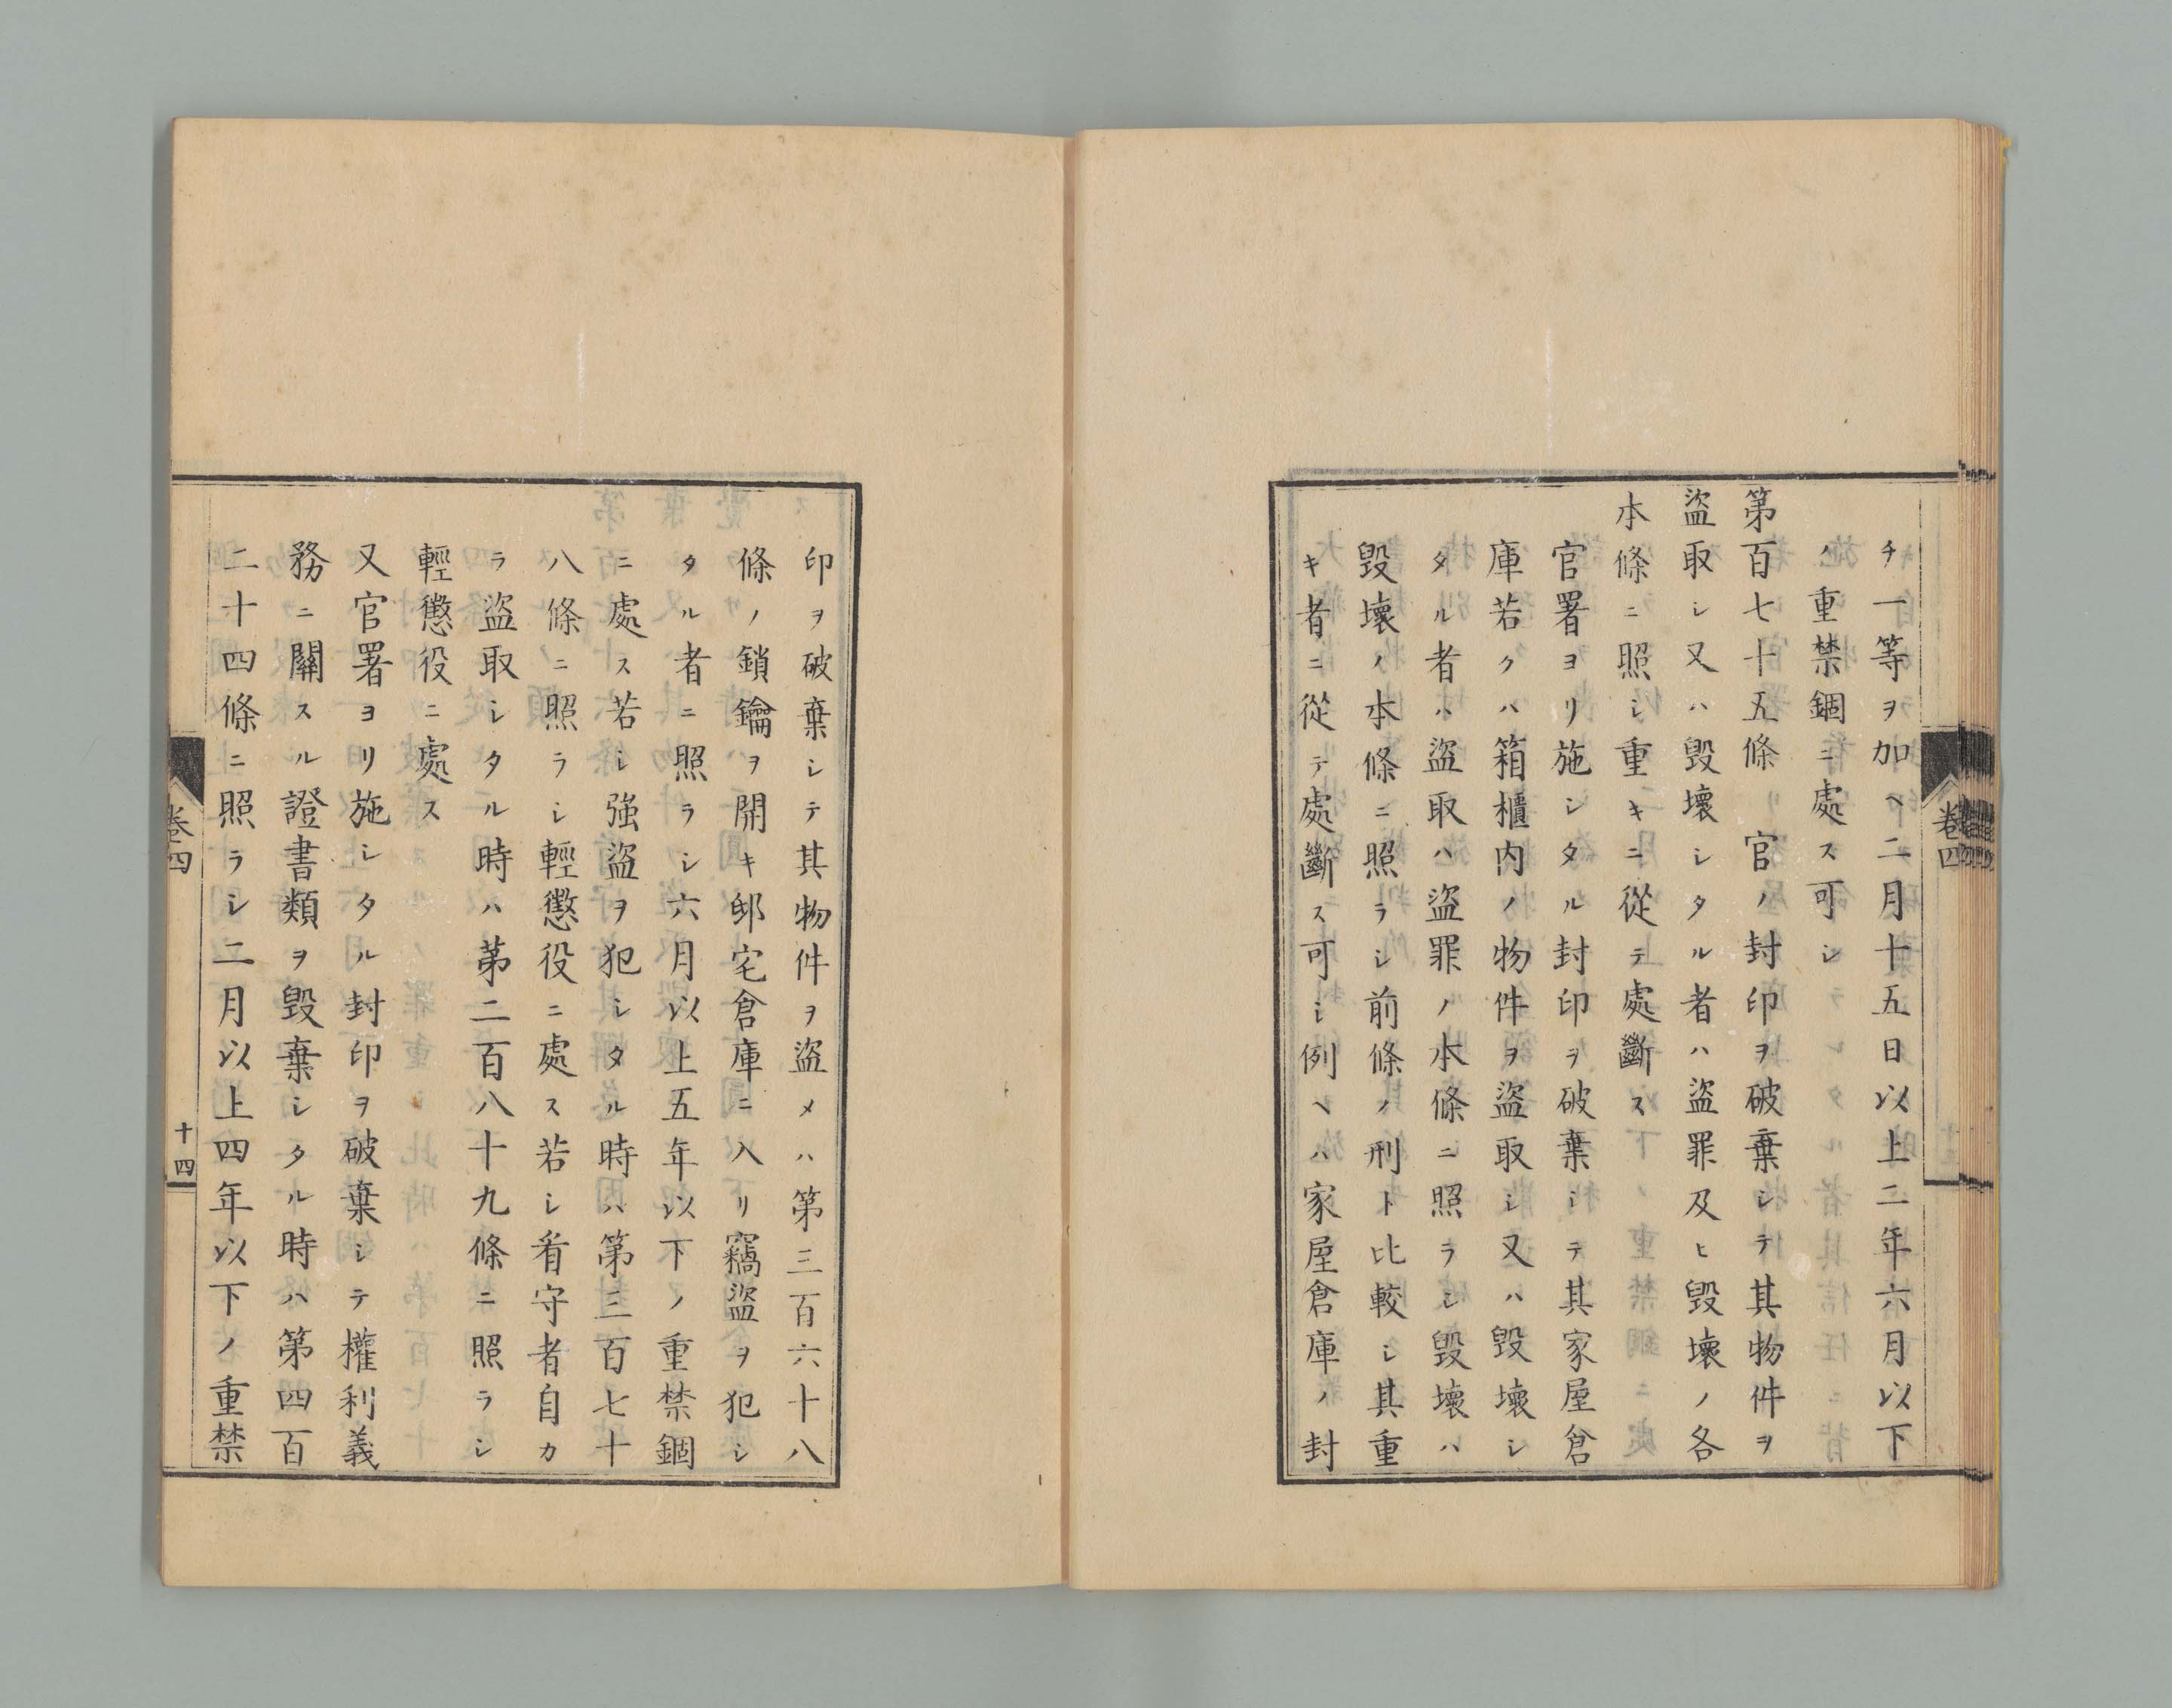 チ一等ヲ加ヘ二月十五日以上二年六月以下
ノ重禁錮ニ處ス可シ
第百七十五條　官ノ封印ヲ破棄シテ其物件ヲ
盜取シ又ハ毀壞シタル者ハ盜罪及ヒ毀壞ノ各
本條ニ照シ重キニ從テ處斷ス
官署ヨリ施シタル封印ヲ破棄シテ其家屋倉
庫若クハ箱櫃内ノ物件ヲ盜取シ又ハ毀壞シ
タル者ハ盜取ハ盜罪ノ本條ニ照ラシ毀壞ハ
毀壞ノ本條ニ照ラシ前條ノ刑ト比較シ其重
キ者ニ從テ處斷ス可シ例ヘハ家屋倉庫ノ封
卷四
印ヲ破棄シテ其物件ヲ盜メハ第三百六十八
條ノ鎖鑰ヲ開キ邸宅倉庫ニ入リ竊盜ヲ犯シ
タル者ニ照ラシ六月以上五年以下ノ重禁錮
ニ處ス若シ強盜ヲ犯シタル時ハ第三百七十
八條ニ照ラシ輕懲役ニ處ス若シ看守者自カ
ラ盜取シタル時ハ第二百八十九條ニ照ラシ
輕懲役ニ處ス
又官署ヨリ施シタル封印ヲ破棄シテ權利義
務ニ關スル證書類ヲ毀棄シタル時ハ第四百
二十四條ニ照ラシ二月以上四年以下ノ重禁
卷四
十四